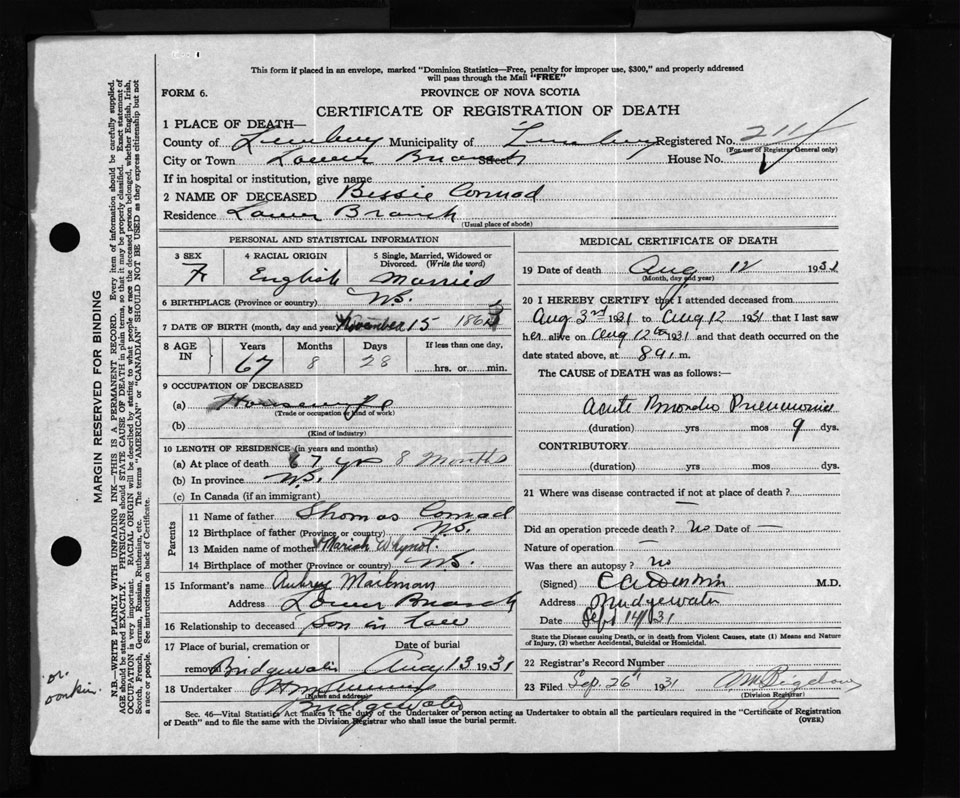 This form if placed in an envelope, marked "Dominion Statistics—Free, penalty for improper use, $300," and properly addressed
will pass through the Mail "FREE"
FORM 6.
PROVINCE OF NOVA SCOTIA
CERTIFICATE OF REGISTRATION OF DEATH
1 PLACE OF DEATH—
County of Lunenburg Municipality of Lunenburg Registered No. 211
(For use of Registrar General only)
City or Town Lower Branch Street House No.
If in hospital or institution, give name
2 NAME OF DECEASED Bessie Conrad
Residence Lower Branch
(Usual place of abode)
PERSONAL AND STATISTICAL INFORMATION
3 SEX 4 RACIAL ORIGIN 5 Single, Married, Widowed or Divorced. (Write the word)
F English Married
6 BIRTHPLACE (Province or country) N.S.
7 DATE OF BIRTH (month, day and year) November 15 1863
8 AGE IN Years Months Days If less than one day,
67 8 28 hrs. or min.
9 OCCUPATION OF DECEASED
(a) Housewife
(Trade or occupation or kind of work)
(b)
(Kind of industry)
10 LENGTH OF RESIDENCE (in years and months)
(a) At place of death 67 yrs 8 Months
(b) In province N.S.
(c) In Canada (if an immigrant)
Parents
11 Name of father Thomas Conrad
12 Birthplace of father (Province or country) N.S.
13 Maiden name of mother Mariah Whynot.
14 Birthplace of mother (Province or country) N.S.
15 Informant's name Aubrey Mailman
Address Lower Branch
16 Relationship to deceased Son in law
17 Place of burial, cremation or removal Date of burial
Bridgewater Aug 13 1931
18 Undertaker
(Name and address)
Bridgewater
MEDICAL CERTIFICATE OF DEATH
19 Date of death Aug 12 1931
(Month, day and year)
20 I HEREBY CERTIFY that I attended deceased from
Aug 3rd 1931 to Aug 12 1931 that I last saw
her alive on Aug 12th 1931 and that death occurred on the
date stated above, at 8 a m.
The CAUSE of DEATH was as follows:—
Acute Broncho Pneumonia
(duration) yrs mos 9 dys.
CONTRIBUTORY
(duration) yrs. mos. dys.
21 Where was disease contracted if not at place of death ?
—
Did an operation precede death ? No Date of —
Nature of operation —
Was there an autopsy ? No
(Signed) M.D.
Address Bridgewater
Date Sept 14/31
State the Disease causing Death, or in death from Violent Causes, state (1) Means and Nature
of Injury, (2) whether Accidental, Suicidal or Homicidal.
22 Registrar's Record Number
23 Filed Sep. 26 1931
(Division Registrar)
Sec. 46—Vital Statistics Act makes it the duty of the Undertaker or person acting as Undertaker to obtain all the particulars required in the "Certificate of Registration
of Death" and to file the same with the Division Registrar who shall issue the burial permit.
(OVER)
MARGIN RESERVED FOR BINDING
N.B.—WRITE PLAINLY WITH UNFADING INK—THIS IS A PERMANENT RECORD. Every item of information should be carefully supplied.
AGE should be stated EXACTLY. PHYSICIANS should STATE CAUSE OF DEATH in plain terms, so that it may be properly classified. Exact statement of
OCCUPATION is very important. RACIAL ORIGIN will be described by stating to what people or race the deceased person belonged, whether English, Irish,
Scotch, French, German, Russian, Ruthenian, etc. The terms "AMERICAN" or "CANADIAN" SHOULD NOT BE USED as they express citizenship but not
a race or people. See instructions on back of Certificate.